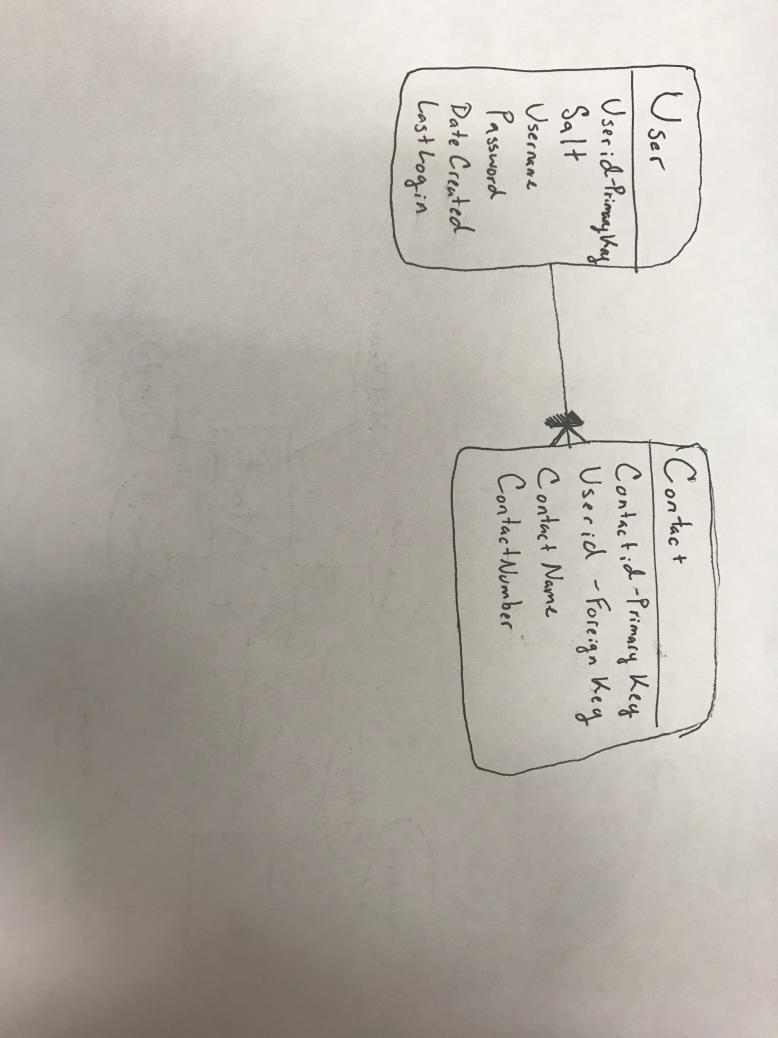 User
Userid-Primary Key
Salt
Username
Password
Date Created
Last Login
Contact
Contactid-Primary Key
Userid - Foreign Key
Contact Name
Contact Number